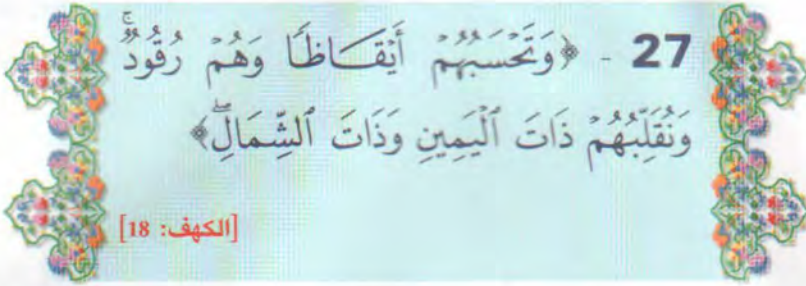 27 - ﴿وَتَحْسَبُهُمْ أَيْقَاظًا وَهُمْ رُقُودٌ ۚ
وَنُقَلِّبُهُمْ ذَاتَ ٱلْيَمِينِ وَذَاتَ ٱلشِّمَالِ ۖ﴾
[الكهف: 18]